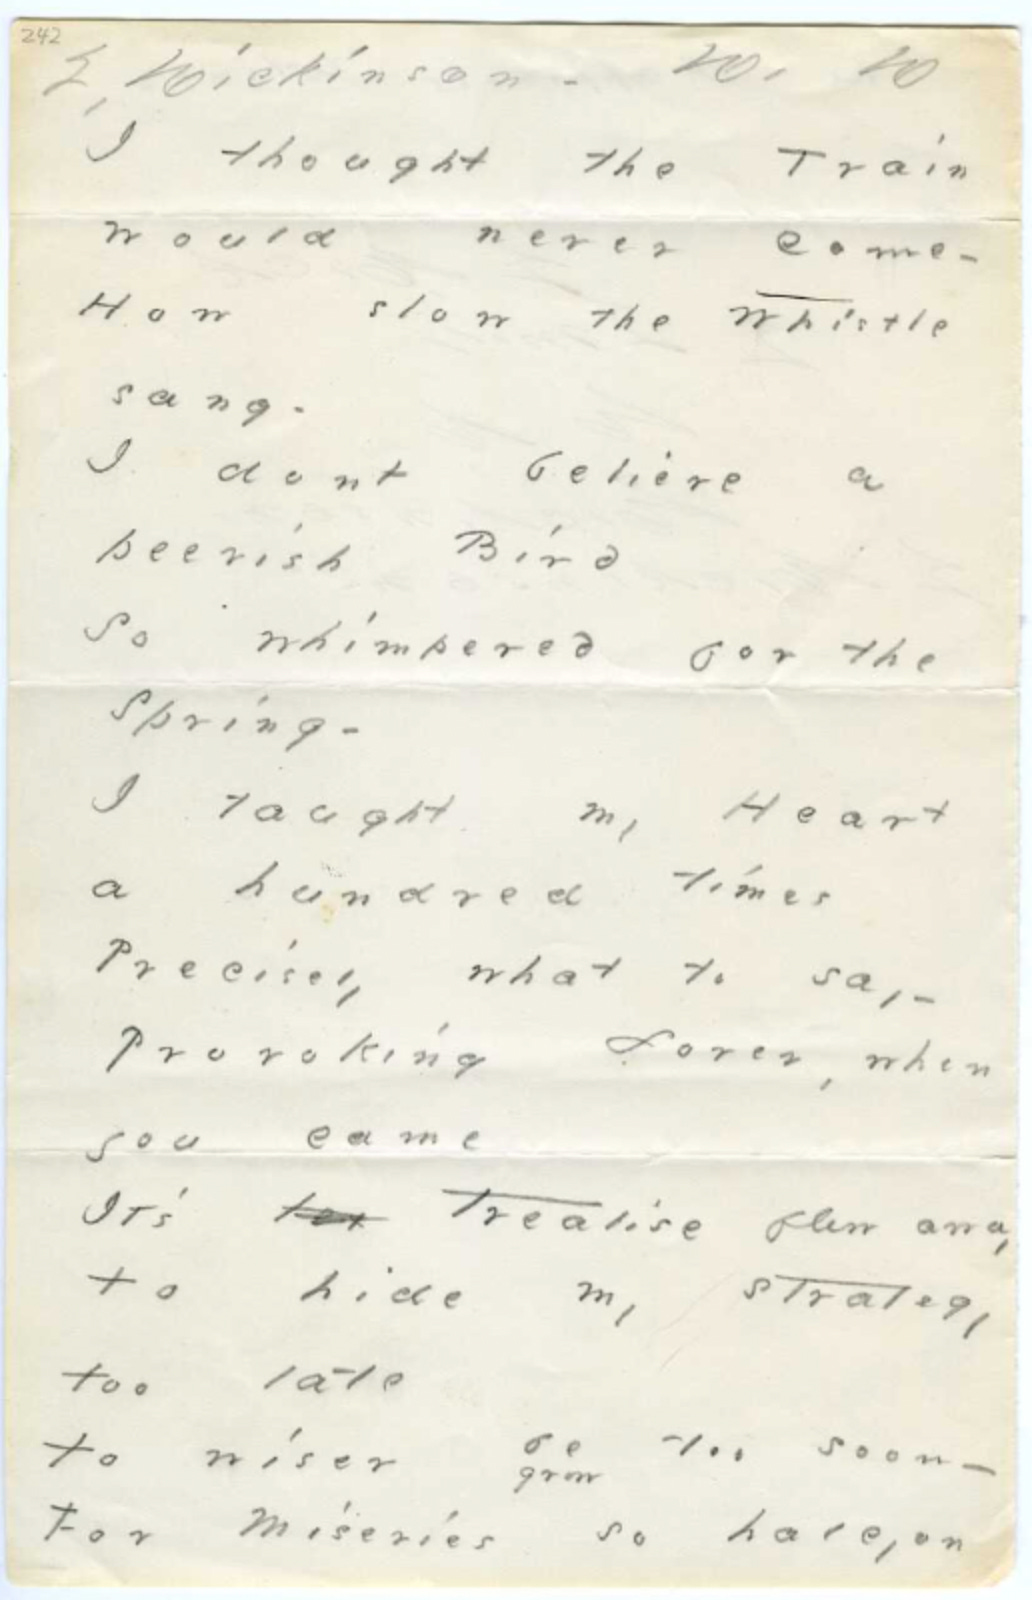 242
E, Dickinson - W. W
I thought the Train
would never come-
How slow the whistle
sang-
I dont believe a
peevish Bird
So whimpered for the
Spring-
I taught my Heart
a hundred times
Precisely what to say-
Provoking Lover, when
you came
It's Treatise flew away
to hide my strategy
too late
to wiser be too soon-
grow
For Miseries so halcyon